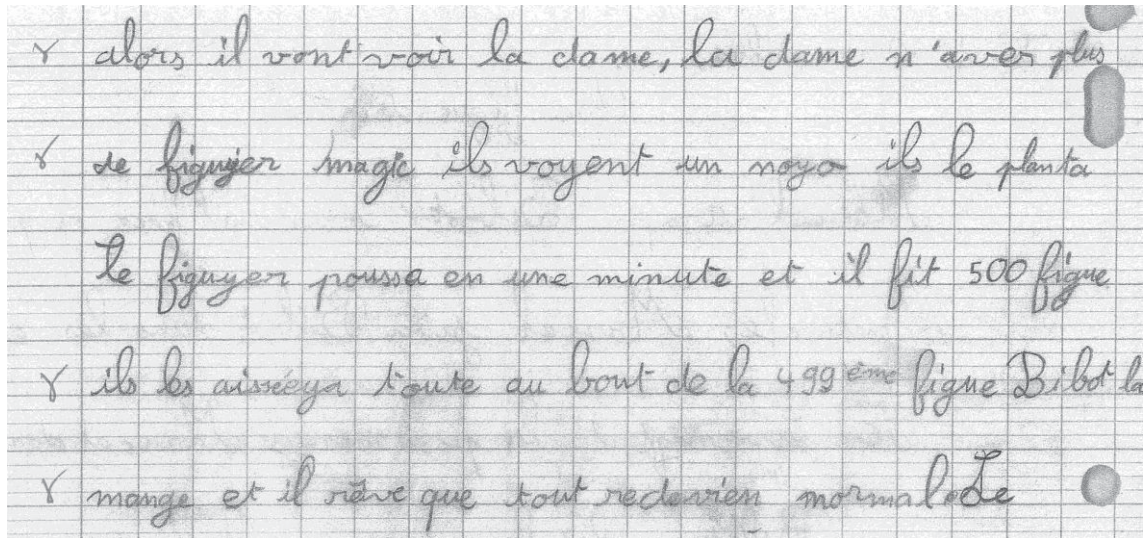 alors il vont voir la dame, la dame n'aver plus
de figuyer magic ils voyent un noyo ils le planta
Le figuyer poussa en une minute et il fit 500 figue
ils les aisséeya toute au bout de la 499 ème figue Bibot la
mange et il rêve que tout redevien normal. Le